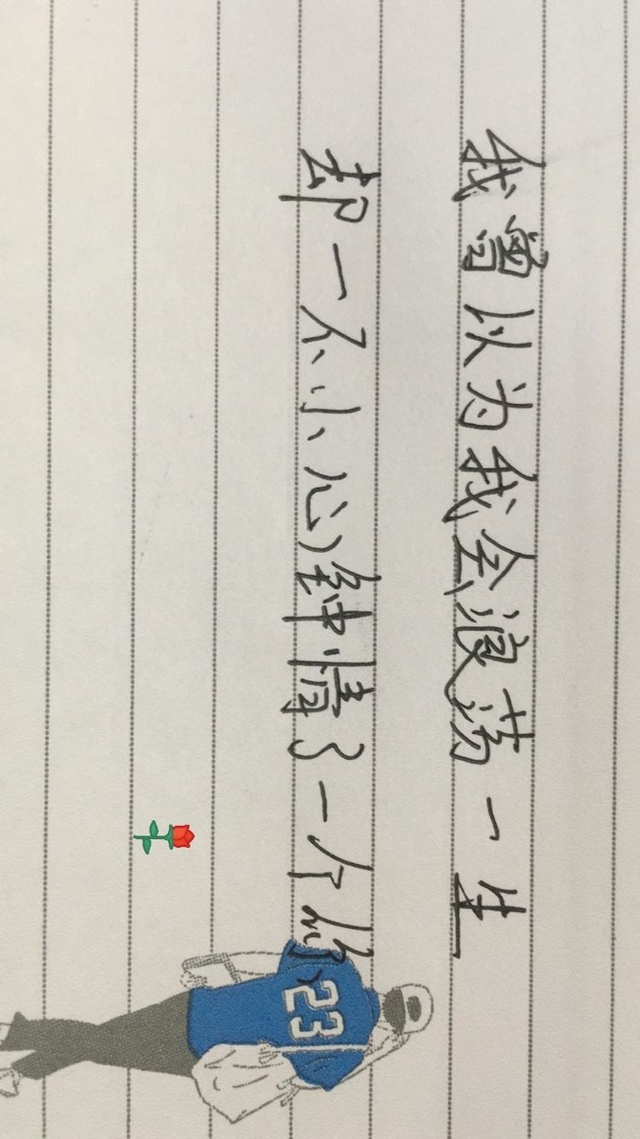 我曾以为我会浪荡一生
却一不小心钟情了一个你
23